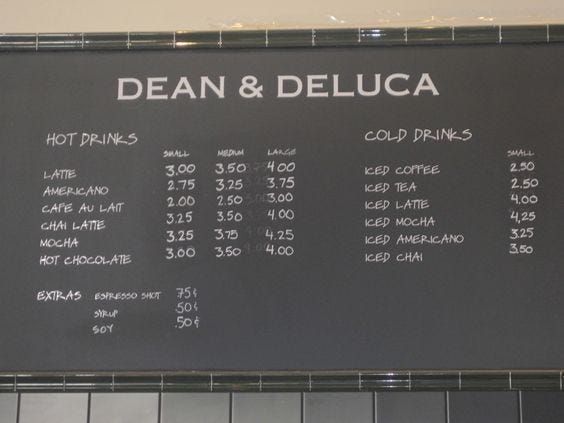 DEAN & DELUCA
HOT DRINKS
SMALL MEDIUM LARGE
LATTE 3.00 3.50 4.00
AMERICANO 2.75 3.25 3.75
CAFE AU LAIT 2.00 2.50 3.00
CHAI LATTE 3.25 3.50 4.00
MOCHA 3.25 3.75 4.25
HOT CHOCOLATE 3.00 3.50 4.00
EXTRAS ESPRESSO SHOT 75¢
SYRUP .50¢
SOY .50¢
COLD DRINKS
SMALL
ICED COFFEE 2.50
ICED TEA 2.50
ICED LATTE 4.00
ICED MOCHA 4,25
ICED AMERICANO 3.25
ICED CHAI 3.50